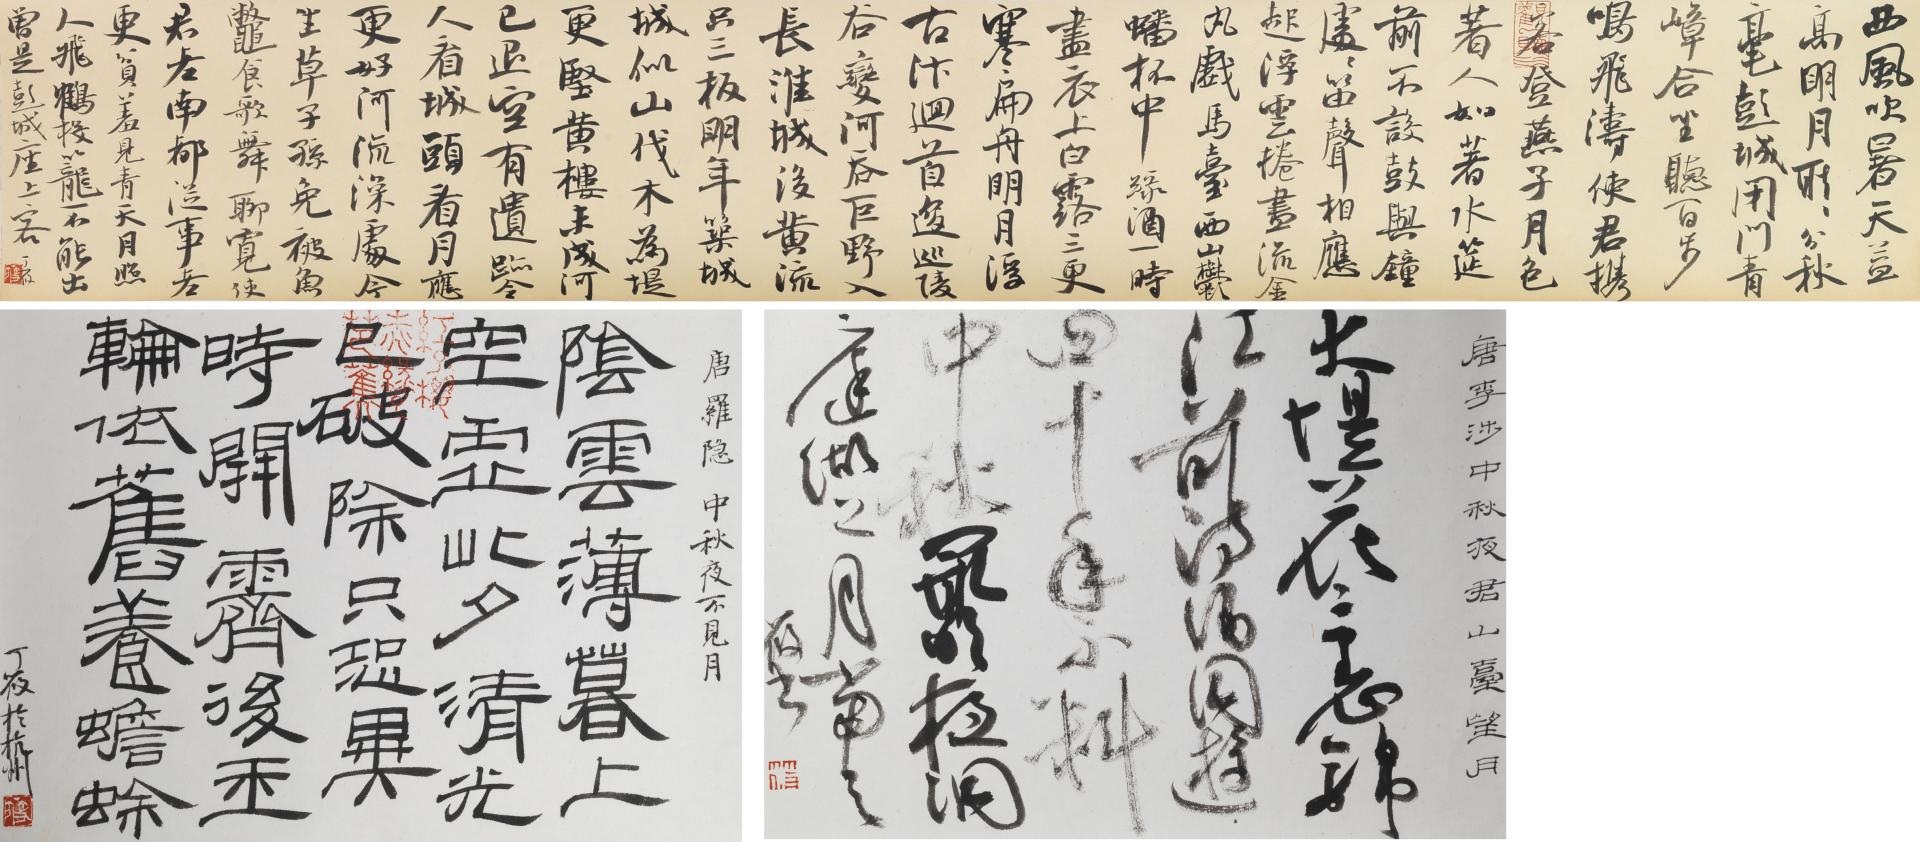 西風吹暑天益
高明月耿〻分秋
毫彭城閉門青
嶂合坐聽百步
鳴飛濤使君攜
客登燕子月色
著人如著水筵
前不設鼓與鐘
處〻笛聲相應
起浮雲捲盡流金
丸戲馬臺西山鬱
蟠杯中綠酒一時
盡衣上白露三更
寒扁舟明月浮
古汴迴首逡巡陵
谷變河吞巨野入
長淮城沒黃流
只三板明年築城
城似山伐木為堤
更堅黃樓未成河
已退空有遺跡令
人看城頭看月應
更好河流深處今
生草子孫免被魚
鱉食歌舞聊寬使
君老南都從事老
更貧羞見青天月照
人飛鶴投籠不能出
曾是彭城座上客 丁筱
唐羅隱 中秋夜不見月
陰雲薄暮上
空虛此夕清光
已破除只恐異
時開霽後玉
輪依舊養蟾蜍
丁筱於杭州
唐李涉中秋夜君山臺望月
大堤花里錦
江前詩酒同遊
四十年不料
中秋最明夜洞
庭湖上月當天
筱書